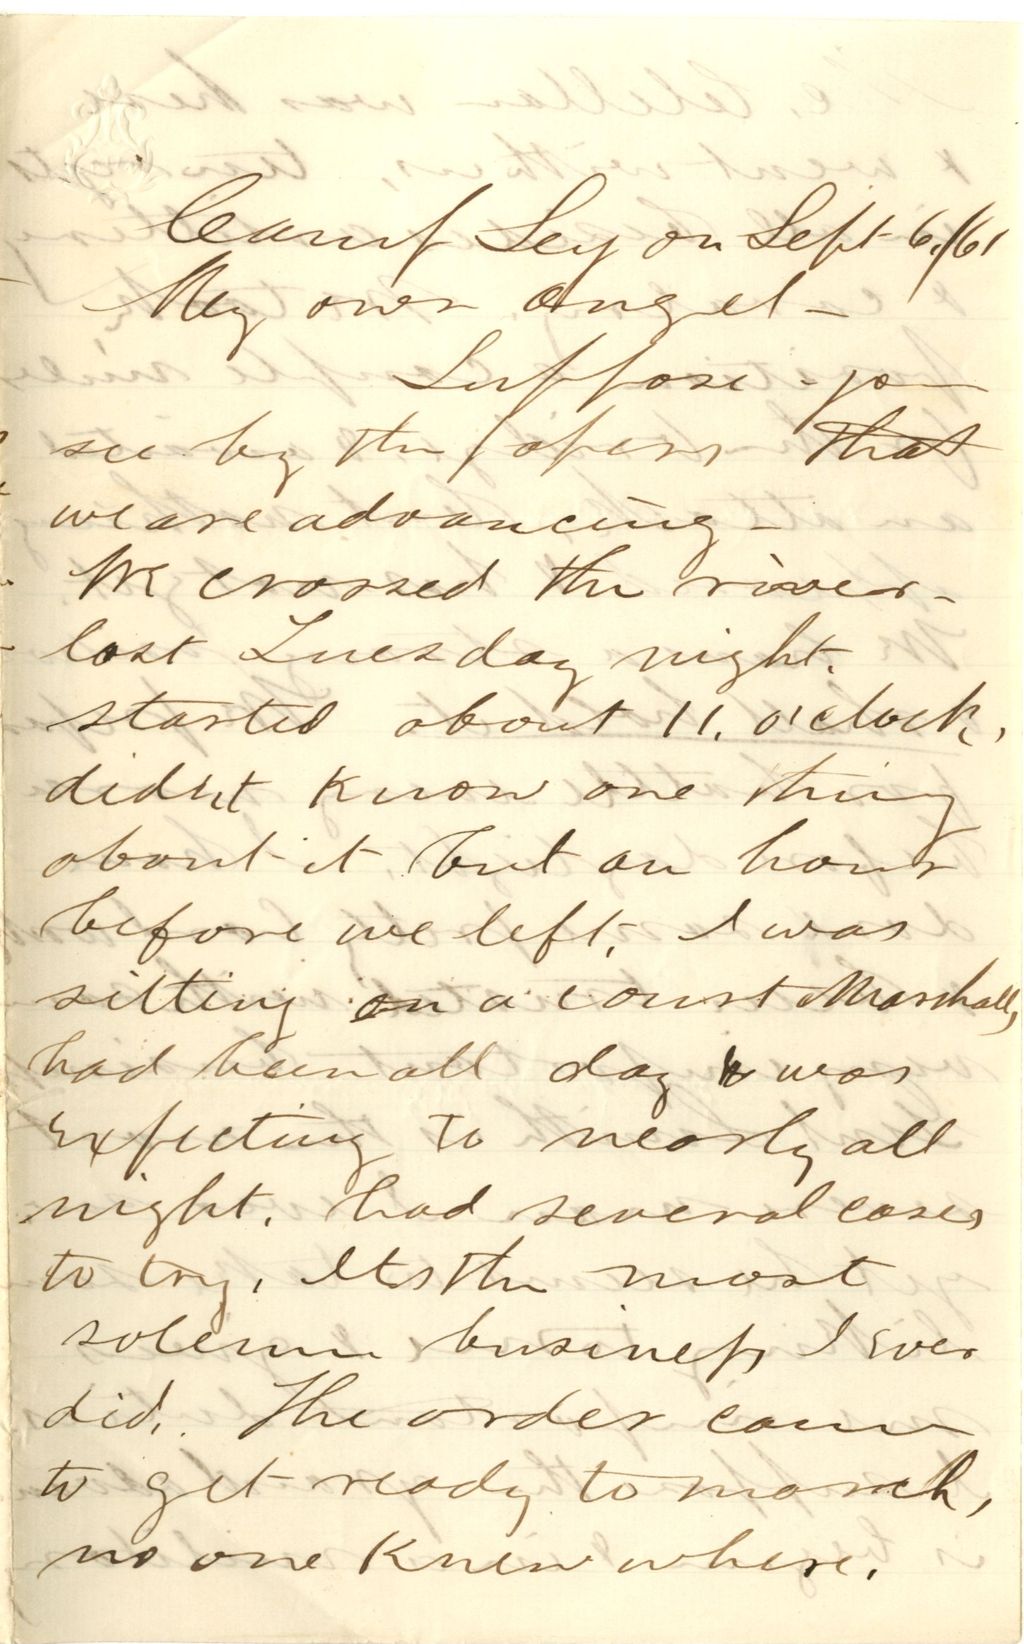 Camp Leyon Sept 6,/61
My own Angel -
Suppose you
see by the papers that
we are advancing -
We crossed the river -
last Tuesday night.
started about 11. o'clock,
didnt know one thing
about it but an hour
before we left, I was
sitting on a court Marshall,
had been all day & was
expecting to nearly all
night. had several cases
to try, Its the most
solemn business I ever
did. The order came
to get ready to march,
no one knew where.